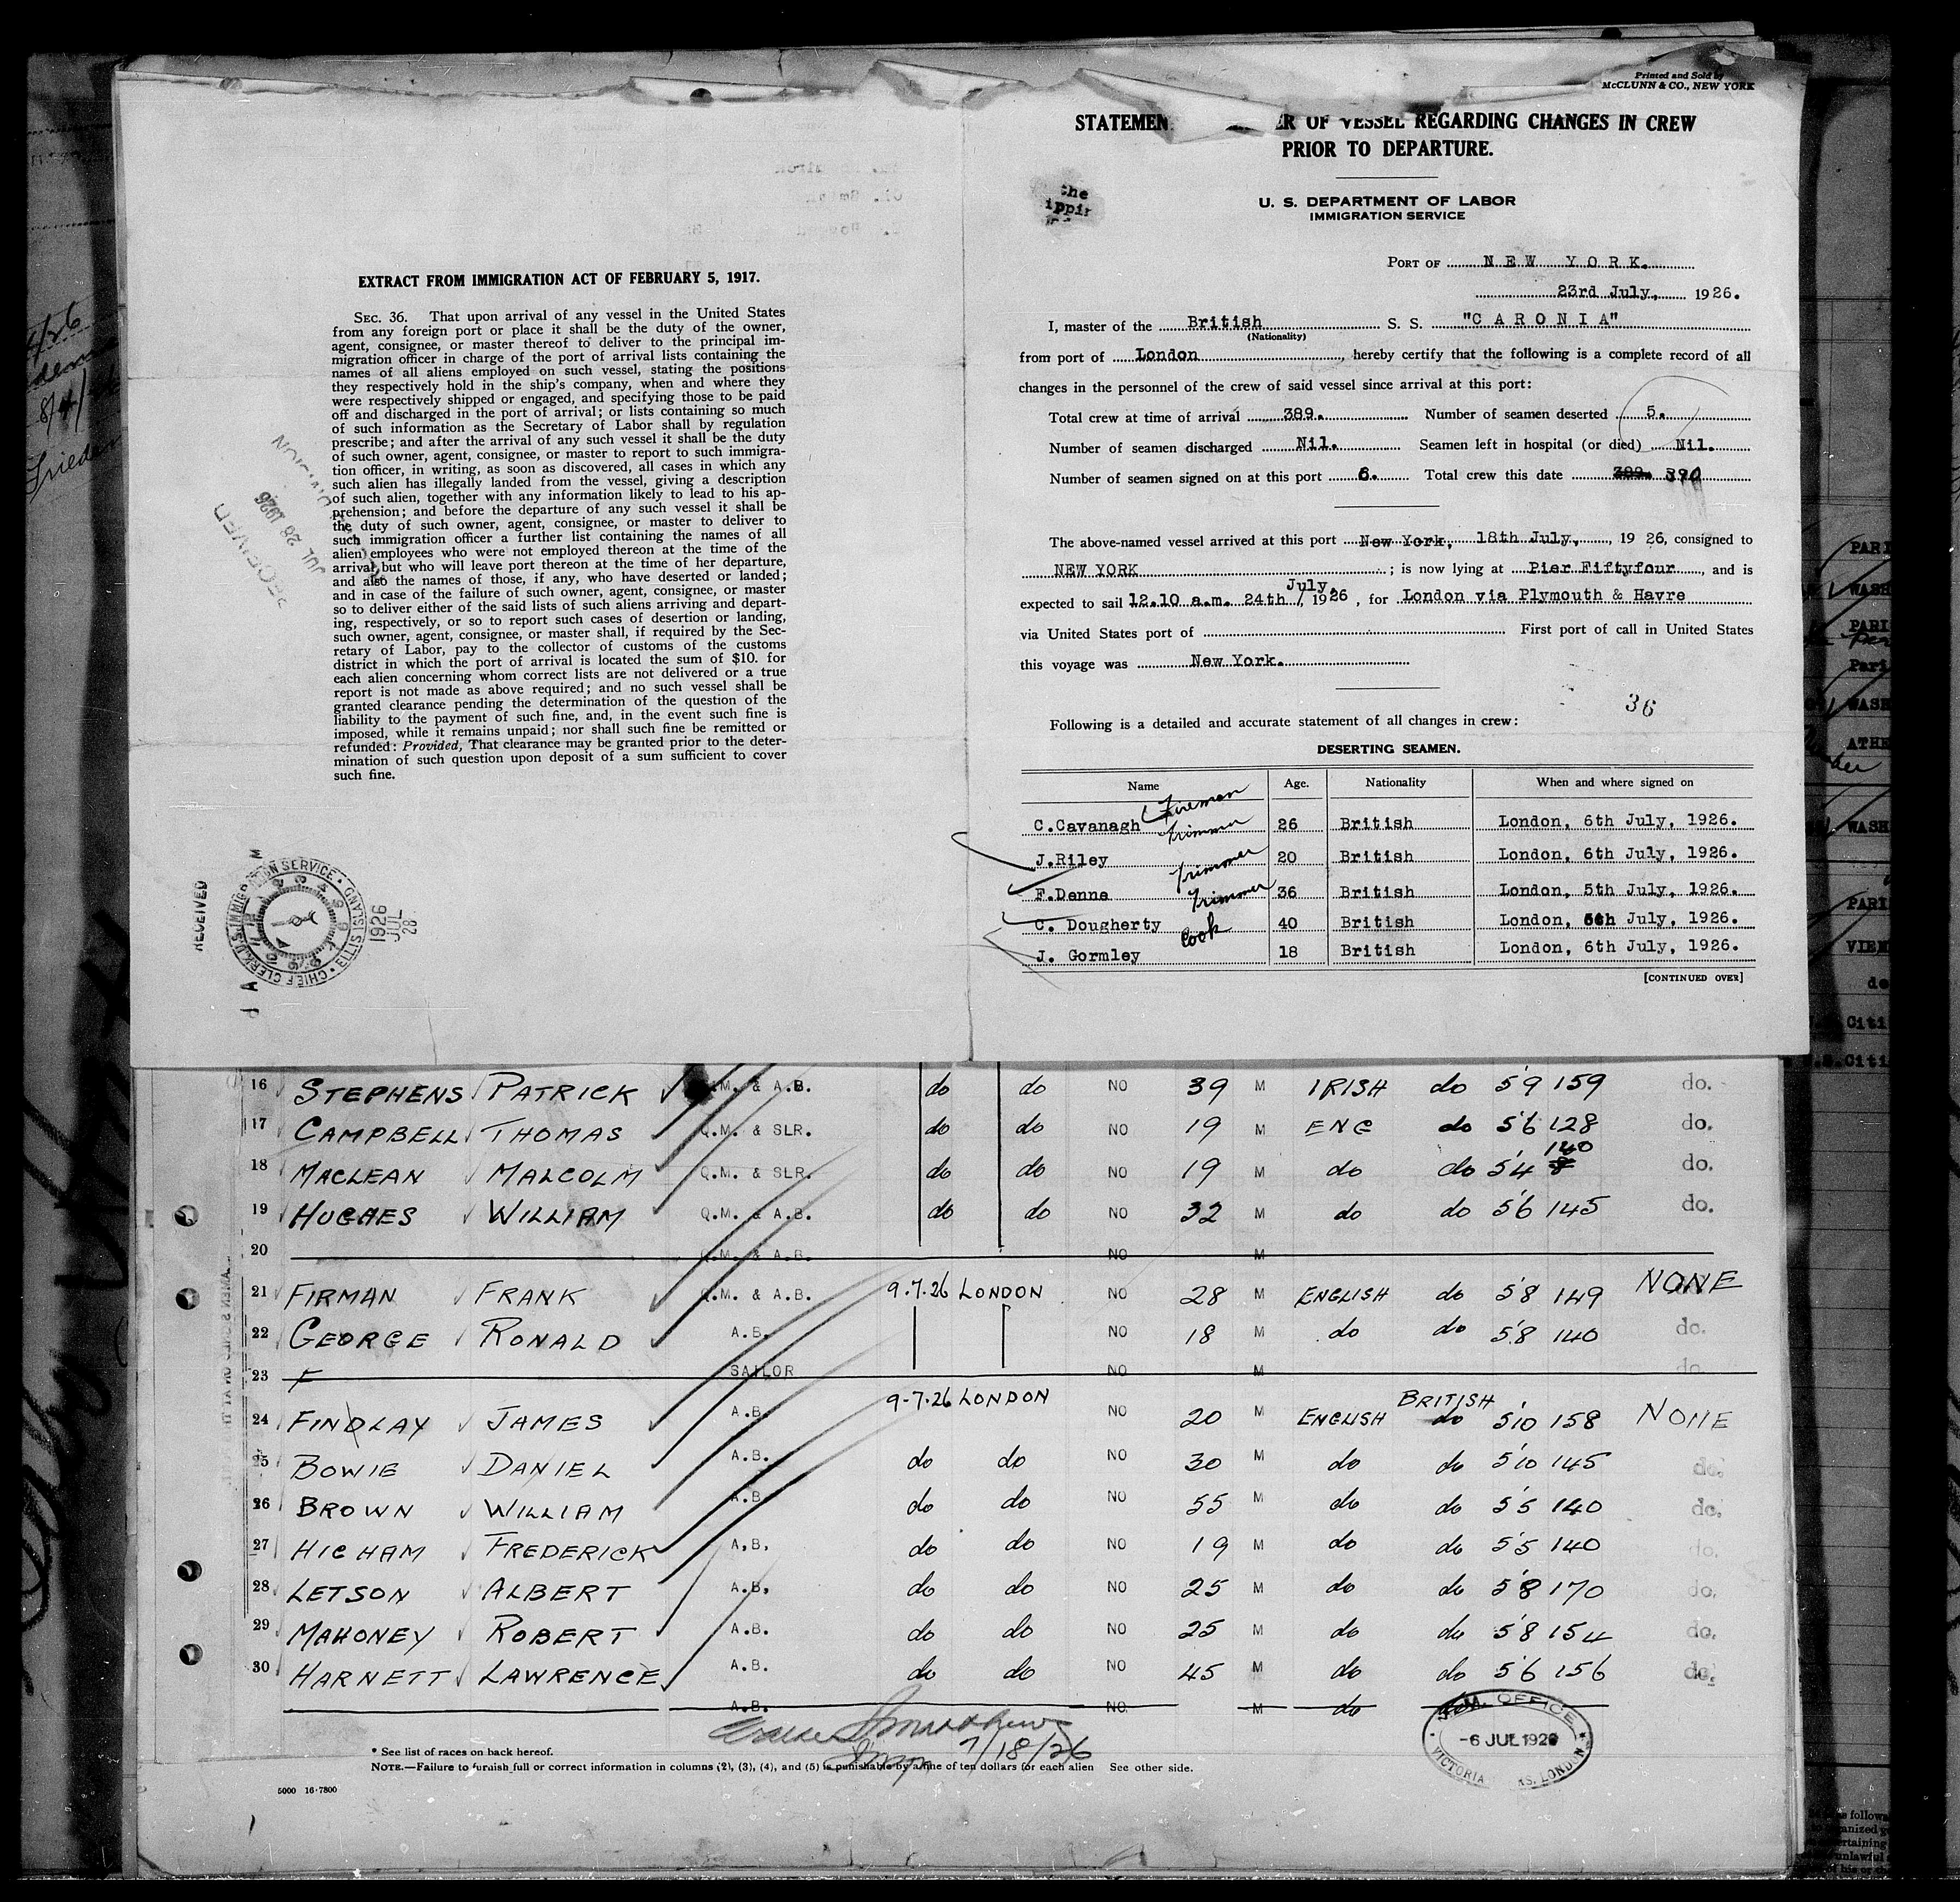 Printed and Sold by
McCLUNN & CO., NEW YORK
STATEMEN ER OF VESSEL REGARDING CHANGES IN CREW
PRIOR TO DEPARTURE.
the
ippin
U. S. DEPARTMENT OF LABOR
IMMIGRATION SERVICE
PORT OF NEW YORK.
23rd July, 1926.
I, master of the British S. S. "CARONIA"
(Nationality)
from port of London, hereby certify that the following is a complete record of all
changes in the personnel of the crew of said vessel since arrival at this port:
Total crew at time of arrival 389. Number of seamen deserted 5.
Number of seamen discharged Nil. Seamen left in hospital (or died) Nil.
Number of seamen signed on at this port 6. Total crew this date 389. 390
The above-named vessel arrived at this port New York, 18th July, 1926, consigned to
NEW YORK; is now lying at Pier Fiftyfour, and is
July,
expected to sail 12.10 a.m. 24th / 1926, for London via Plymouth & Havre
via United States port of First port of call in United States
this voyage was New York.
36
Following is a detailed and accurate statement of all changes in crew:
DESERTING SEAMEN.
Name Age. Nationality When and where signed on
C.Cavanagh Fireman 26 British London, 6th July, 1926.
J.Riley Trimmer 20 British London, 6th July, 1926.
F.Denne Trimmer 36 British London, 5th July, 1926.
C. Dougherty Trimmer 40 British London, 6th July, 1926.
J. Gormley Cook 18 British London, 6th July, 1926.
[CONTINUED OVER]
EXTRACT FROM IMMIGRATION ACT OF FEBRUARY 5, 1917.
SEC. 36. That upon arrival of any vessel in the United States
from any foreign port or place it shall be the duty of the owner,
agent, consignee, or master thereof to deliver to the principal im-
migration officer in charge of the port of arrival lists containing the
names of all aliens employed on such vessel, stating the positions
they respectively hold in the ship's company, when and where they
were respectively shipped or engaged, and specifying those to be paid
off and discharged in the port of arrival; or lists containing so much
of such information as the Secretary of Labor shall by regulation
prescribe; and after the arrival of any such vessel it shall be the duty
of such owner, agent, consignee, or master to report to such immigra-
tion officer, in writing, as soon as discovered, all cases in which any
such alien has illegally landed from the vessel, giving a description
of such alien, together with any information likely to lead to his ap-
prehension; and before the departure of any such vessel it shall be
the duty of such owner, agent, consignee, or master to deliver to
such immigration officer a further list containing the names of all
alien employees who were not employed thereon at the time of the
arrival but who will leave port thereon at the time of her departure,
and also the names of those, if any, who have deserted or landed;
and in case of the failure of such owner, agent, consignee, or master
so to deliver either of the said lists of such aliens arriving and depart-
ing, respectively, or so to report such cases of desertion or landing,
such owner, agent, consignee, or master shall, if required by the Sec-
retary of Labor, pay to the collector of customs of the customs
district in which the port of arrival is located the sum of $10. for
each alien concerning whom correct lists are not delivered or a true
report is not made as above required; and no such vessel shall be
granted clearance pending the determination of the question of the
liability to the payment of such fine, and, in the event such fine is
imposed, while it remains unpaid; nor shall such fine be remitted or
refunded: Provided, That clearance may be granted prior to the deter-
mination of such question upon deposit of a sum sufficient to cover
such fine.
RECEIVED
JUL 28 1926
DIVISION
RECEIVED
U.S. IMMIGRATION SERVICE. CHIEF CLERK ELLIS ISLAND
1926
JUL
28
16 STEPHENS PATRICK Q.M. & A.B. do do NO 39 M IRISH do 5'9 159 do.
17 CAMPBELL THOMAS Q.M. & SLR. do do NO 19 M ENG do 5'6 128 do.
18 MACLEAN MALCOLM Q.M. & SLR. do do NO 19 M do do 5'4 140 do.
19 HUGHES WILLIAM Q.M. & A.B. do do NO 32 M do do 5'6 145 do.
20 Q.M. & A.B. NO M
21 FIRMAN FRANK Q.M. & A.B. 9.7.26 LONDON NO 28 M ENGLISH do 5'8 149 NONE
22 GEORGE RONALD A.B. NO 18 M do do 5'8 140 do.
23 F SAILOR NO M do.
24 FINDLAY JAMES A.B. 9-7-26 LONDON NO 20 M ENGLISH BRITISH do 5'10 158 NONE
25 BOWIE DANIEL A.B. do do NO 30 M do do 5'10 145 do.
26 BROWN WILLIAM A.B. do do NO 55 M do do 5'5 140 do.
27 HIGHAM FREDERICK A.B. do do NO 19 M do do 5'5 140 do.
28 LETSON ALBERT A.B. do do NO 25 M do do 5'8 170 do.
29 MAHONEY ROBERT A.B. do do NO 25 M do do 5'8 154 do.
30 HARNETT LAWRENCE A.B. do do NO 45 M do do 5'6 156 do.
A.B. NO. M do do
7/18/26
OFFICE
-6 JUL 1926
VICTORIA LONDON
* See list of races on back hereof.
NOTE.—Failure to furnish full or correct information in columns (2), (3), (4), and (5) is punishable by a fine of ten dollars for each alien See other side.
5000 16-7800
PARI
WASH
PARI
Pari
WASH
ATHE
WASH
PARI
VIEN
de
Citi
.S.Citi